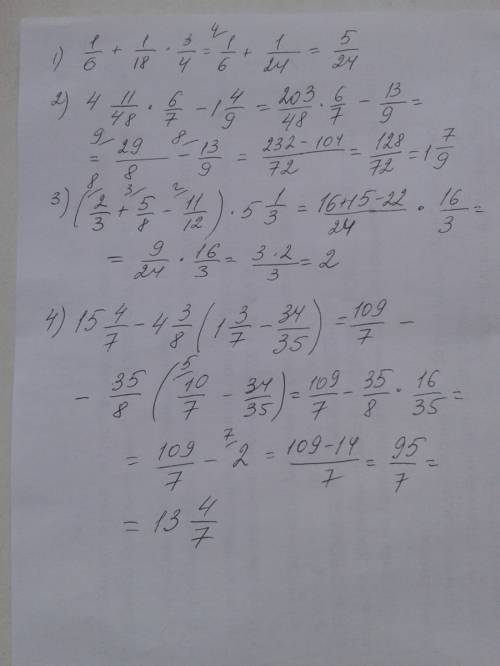 1) 1/6 + 1/18 · 3/4 = 4/ 1/6 + 1/24 = 5/24
2) 4 11/48 · 6/7 - 1 4/9 = 203/48 · 6/7 - 13/9 =
= 9/ 29/8 - 8/ 13/9 = 232-104/72 = 128/72 = 1 7/9
3) (8/ 2/3 + 3/ 5/8 - 2/ 11/12) · 5 1/3 = 16+15-22/24 · 16/3 =
= 9/24 · 16/3 = 3·2/3 = 2
4) 15 4/7 - 4 3/8 (1 3/7 - 34/35) = 109/7 -
- 35/8 (5/ 10/7 - 34/35) = 109/7 - 35/8 · 16/35 =
= 109/7 - 7/ 2 = 109-14/7 = 95/7 =
= 13 4/7